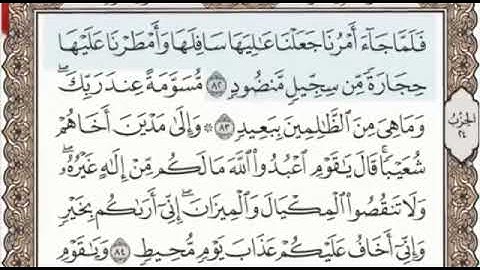 فَلَمَّا جَآءَ أَمْرُنَا جَعَلْنَا عَٰلِيَهَا سَافِلَهَا وَأَمْطَرْنَا عَلَيْهَا
حِجَارَةً مِّن سِجِّيلٍ مَّنضُودٍ ٨٢ مُّسَوَّمَةً عِندَ رَبِّكَۖ
وَمَا هِىَ مِنَ ٱلظَّٰلِمِينَ بِبَعِيدٍ ٨٣ ۞ وَإِلَىٰ مَدْيَنَ أَخَاهُمْ
شُعَيْبًاۚ قَالَ يَٰقَوْمِ ٱعْبُدُوا۟ ٱللَّهَ مَا لَكُم مِّنْ إِلَٰهٍ غَيْرُهُۥۖ
وَلَا تَنقُصُوا۟ ٱلْمِكْيَالَ وَٱلْمِيزَانَۖ إِنِّىٓ أَرَىٰكُم بِخَيْرٍ
وَإِنِّىٓ أَخَافُ عَلَيْكُمْ عَذَابَ يَوْمٍ مُّحِيطٍ ٨٤ وَيَٰقَوْمِ
الحزب
٢٤